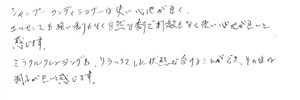 シャンプー・コンディショナーは使い心地が良く、
エッセンスも強い刺もなく自然な香で刺激もなく使い心地が良いと
感じます。
ミラクルクレンジングも、リラックスした状態で受けることができ、その後は
調子が良いと感じます。